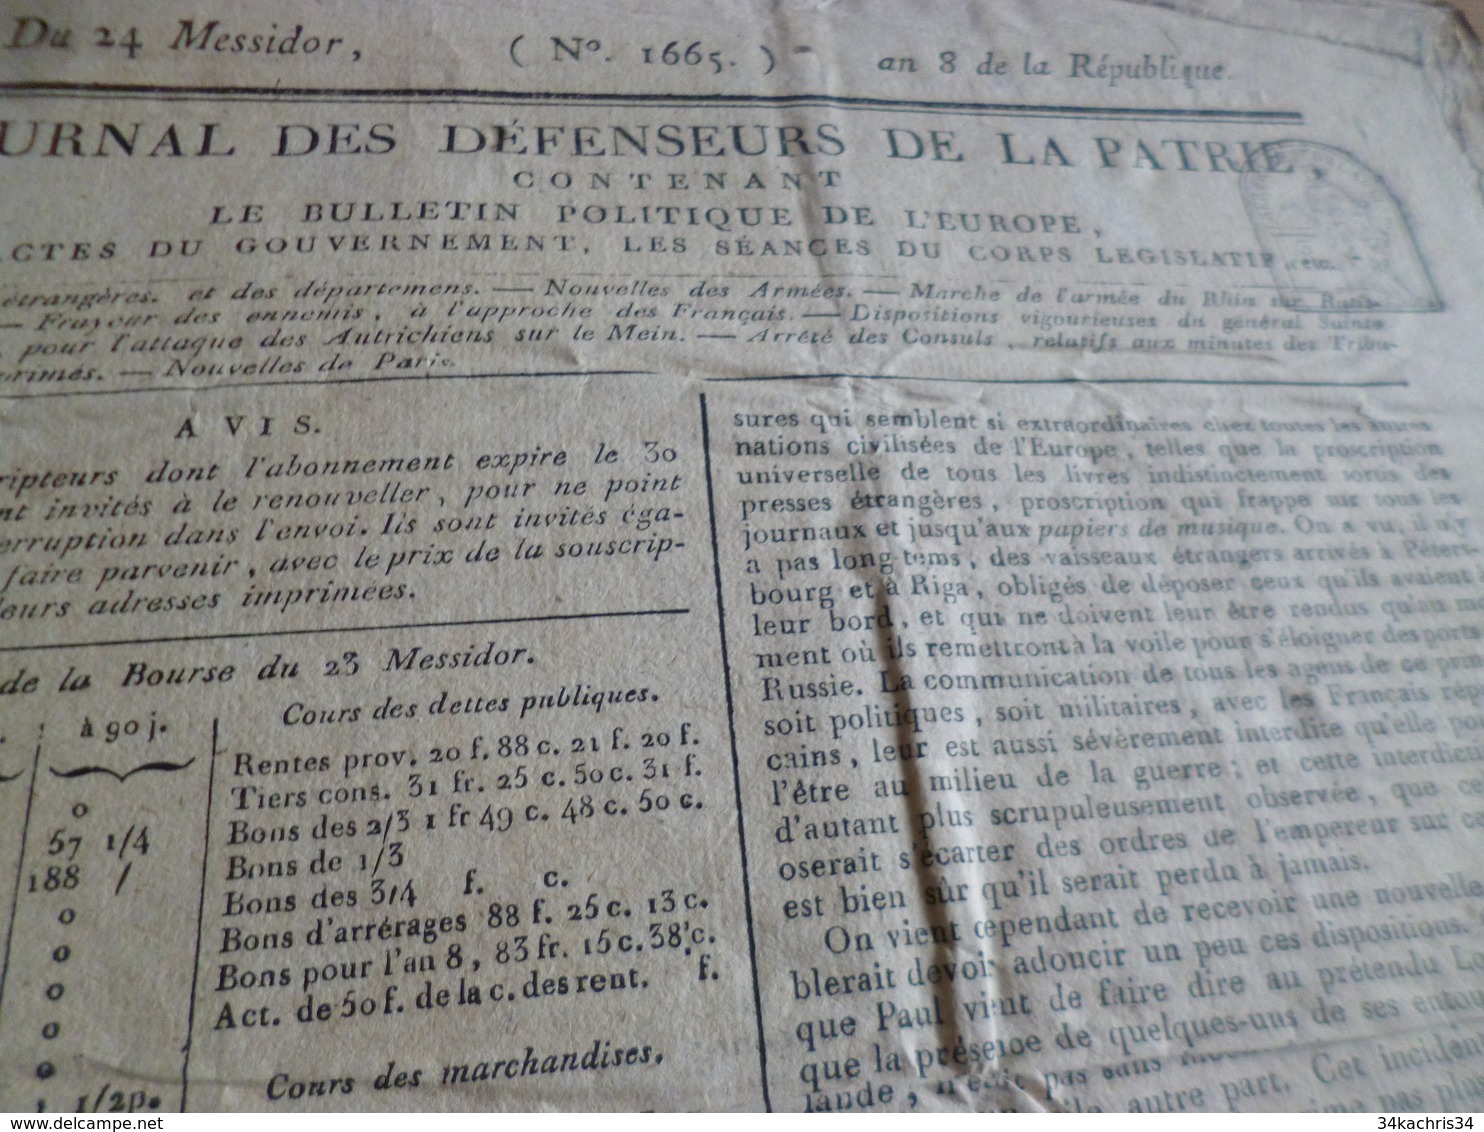 Du 24 Messidor, ( N°. 1665. ) an 8 de la République.
URNAL DES DÉFENSEURS DE LA PATRIE,
CONTENANT
LE BULLETIN POLITIQUE DE L'EUROPE,
ACTES DU GOUVERNEMENT, LES SÉANCES DU CORPS LEGISLATIF, etc.
étrangères. et des départemens. — Nouvelles des Armées. — Marche de l'armée du Rhin sur Ratis-
— Frayeur des ennemis, à l'approche des Français. — Dispositions vigourieuses du général Sainte
, pour l'attaque des Autrichiens sur le Mein. — Arrêté des Consuls, relatifs aux minutes des Tribu-
primés. — Nouvelles de Paris.
AVIS.
cripteurs dont l'abonnement expire le 30
nt invités à le renouveller, pour ne point
erruption dans l'envoi. Ils sont invités éga-
faire parvenir, avec le prix de la souscrip-
leurs adresses imprimées.
de la Bourse du 23 Messidor.
à 90 j.
o
57 1/4
188 /
o
o
o
o
o
1 1/2p.
Cours des dettes publiques.
Rentes prov. 20 f. 88 c. 21 f. 20 f.
Tiers cons. 31 fr. 25 c. 50 c. 31 f.
Bons des 2/3 1 fr 49 c. 48 c. 50 c.
Bons de 1/3
Bons des 3/4 f. c.
Bons d'arrérages 88 f. 25 c. 13 c.
Bons pour l'an 8, 83 fr. 15 c. 38 c.
Act. de 50 f. de la c. des rent. f.
Cours des marchandises.
sures qui semblent si extraordinaires chez toutes les autres
nations civilisées de l'Europe, telles que la proscription
universelle de tous les livres indistinctement sortis des
presses étrangères, proscription qui frappe sur tous les
journaux et jusqu'aux papiers de musique. On a vu, il n'y
a pas long-tems, des vaisseaux étrangers arrivés à Péters-
bourg et à Riga, obligés de déposer ceux qu'ils avaient à
leur bord, et qui ne doivent leur être rendus qu'au mo
ment où ils remettront à la voile pour s'éloigner des ports
Russie. La communication de tous les agens de ce prin
soit politiques, soit militaires, avec les Français répu
cains, leur est aussi sévèrement interdite qu'elle po
l'être au milieu de la guerre; et cette interdic
d'autant plus scrupuleusement observée, que ce
oserait s'écarter des ordres de l'empereur sur ce
est bien sûr qu'il serait perdu à jamais.
On vient cependant de recevoir une nouvelle
blerait devoir adoucir un peu ces dispositions.
que Paul vient de faire dire au prétendu Lo
que la présence de quelques-uns de ses entou
lande, n'était pas sans
autre part. Cet inciden
pas plu
34kachris34